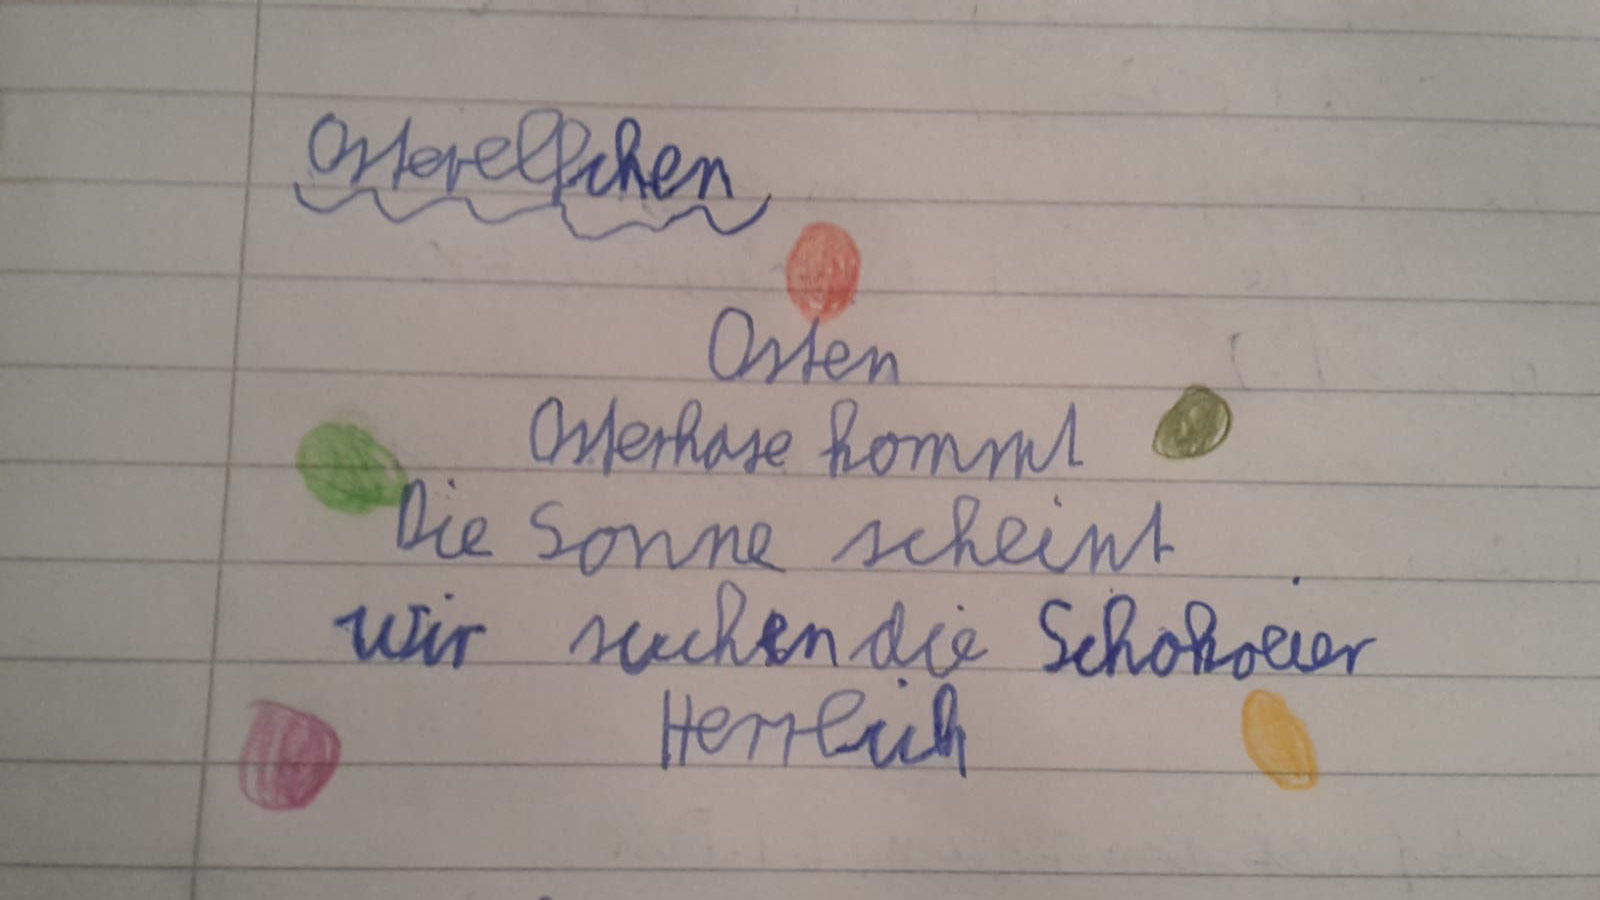 Osterelfchen
Osten
Osterhase kommt
Die Sonne scheint
wir suchen die Schokoeier
Herrlich